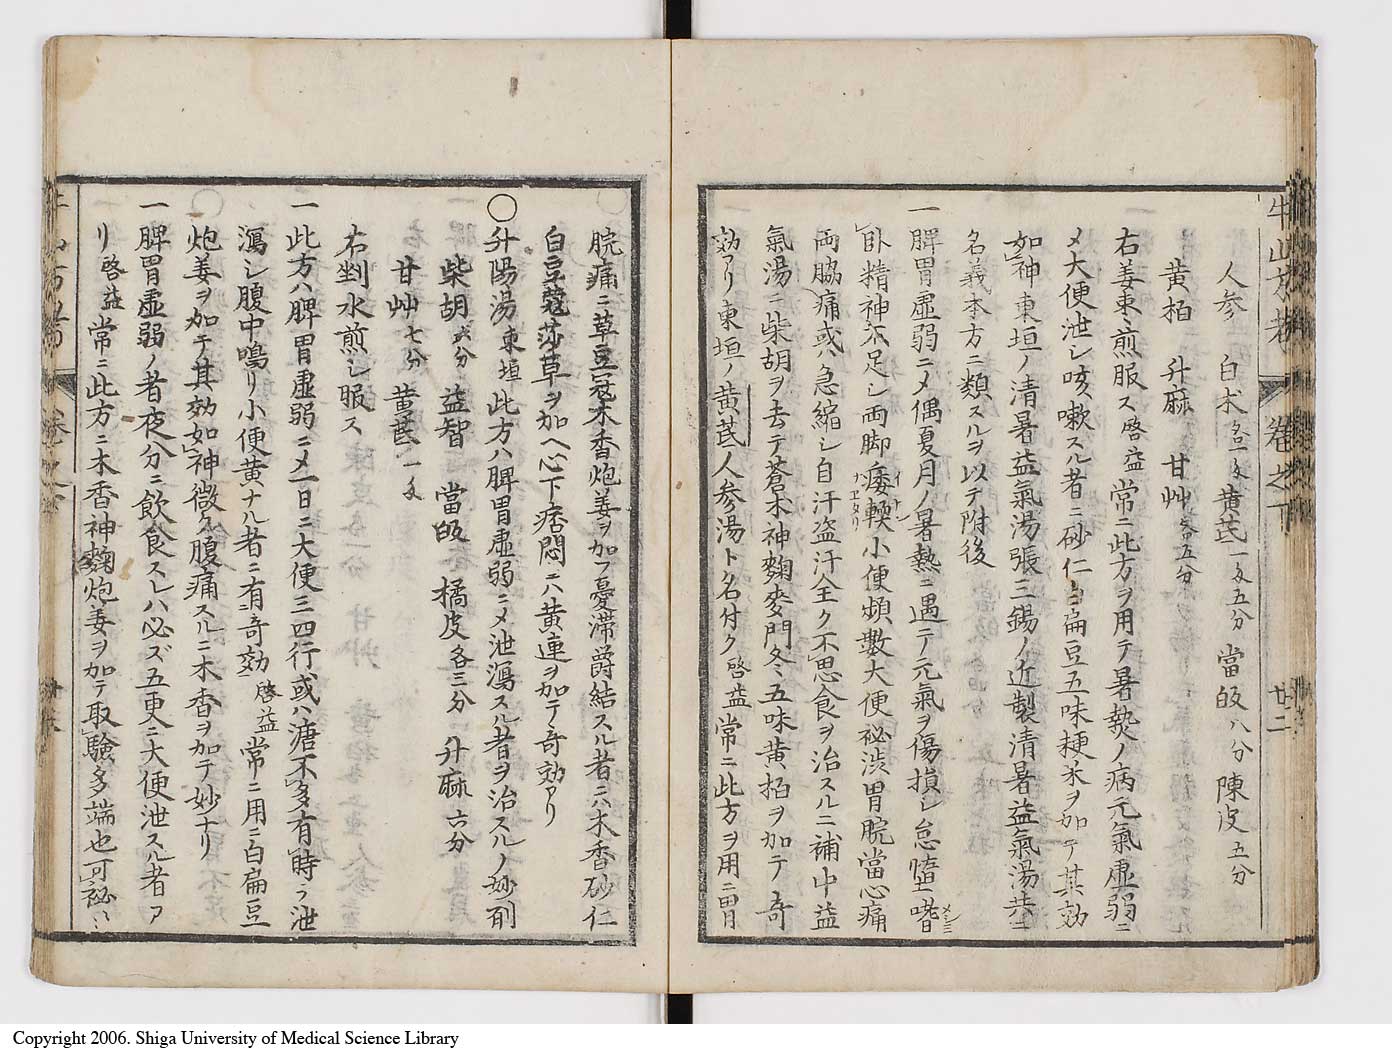 牛山方考 卷之下 廿二
人參 白朮各一匁 黄芪一匁五分 當皈八分 陳皮五分
黄栢 升麻 甘艸各五分
右姜枣煎服ス啓益常ニ此方ヲ用テ暑熱ノ病元氣虚弱ニ
メ大便泄シ咳嗽スル者ニ砂仁白扁豆五味粳米ヲ加テ其効
如神東垣ノ清暑益氣湯張三錫ノ近製清暑益氣湯共ニ
名義本方ニ類スルヲ以テ附後
一脾胃虚弱ニメ偶夏月ノ暑熱ニ遇テ元氣ヲ傷損シ怠惰嗜
臥精神不足シ両脚痿軟小便頻數大便祕渋胃脘當心痛
両脇痛或ハ急縮シ自汗盗汗全ク不思食ヲ治スルニ補中益
氣湯ニ柴胡ヲ去テ蒼朮神麴麥門冬五味黄栢ヲ加テ奇
効アリ東垣ノ黄芪人参湯ト名付ク啓益常ニ此方ヲ用ニ胃
脘痛ニ草豆冦木香炮姜ヲ加フ憂滞欝結スル者ニハ木香砂仁
白豆蔲莎草ヲ加ヘ心下痞悶ニハ黄連ヲ加テ奇効アリ
○升陽湯東垣此方ハ脾胃虚弱ニメ泄瀉スル者ヲ治スルノ妙剤
柴胡弐分 益智 當皈 橘皮各三分 升麻六分
甘艸七分 黄芪一匁
右剉水煎シ服ス
一此方ハ脾胃虚弱ニメ一日ニ大便三四行或ハ溏不多有時ラ泄
瀉シ腹中鳴リ小便黄ナル者ニ有奇効啓益常ニ用ニ白扁豆
炮姜ヲ加テ其効如神微ク腹痛スルニ木香ヲ加テ妙ナリ
一脾胃虚弱ノ者夜分ニ飲食スレハ必ズ五更ニ大便泄スル者ア
リ啓益常ニ此方ニ木香神麴炮姜ヲ加テ取驗多端也可祕ミミ
Copyright 2006. Shiga University of Medical Science Library